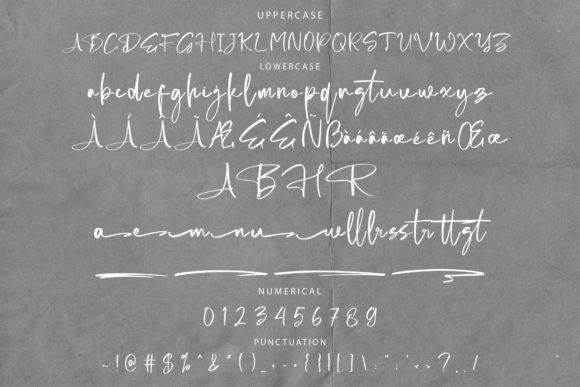 UPPERCASE
ABCDEFGHIJKLMNOPQRSTUVWXYZ
LOWERCASE
abcdefghijklmnopqrstuvwxyz
ÀÁÂÃÆÉÊÑßàáâãæéêñŒœ
ABHR
a e m n u w ll lr ss tr tt gt
NUMERICAL
0123456789
PUNCTUATION
~!@#$%^&*()_-+={}|[]\:;"',<>?./